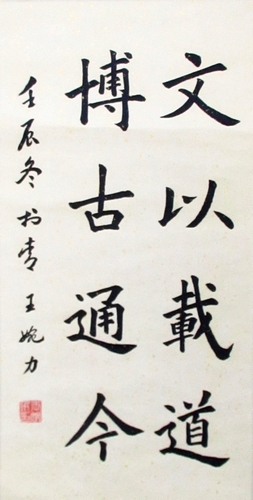 文以載道
博古通今
壬辰冬於青王婉力